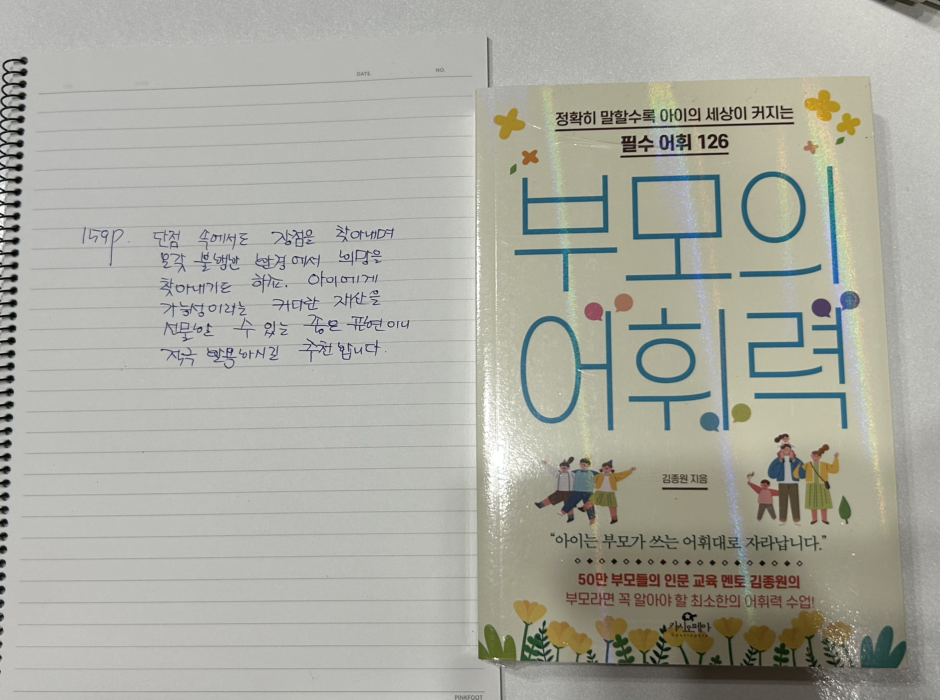 DATE. NO.
159p. 단점 속에서도 장점을 찾아내며
모각 불행한 환경에서 희망을
찾아내기도 하죠. 아이에게
가능성이라는 커다란 자산을
선물할 수 있는 좋은 표현이니
적극 활용하시길 추천합니다.
PINKFOOT
정확히 말할수록 아이의 세상이 커지는
필수 어휘 126
부모의
어휘력
김종원 지음
“아이는 부모가 쓰는 어휘대로 자라납니다.”
50만 부모들의 인문 교육 멘토 김종원의
부모라면 꼭 알아야 할 최소한의 어휘력 수업!
카시오페아